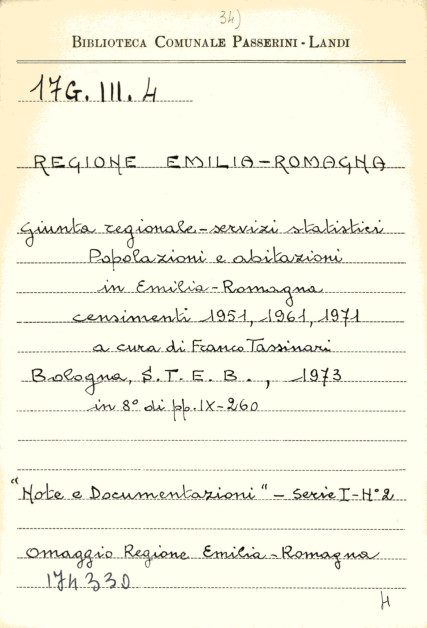 34)
BIBLIOTECA COMUNALE PASSERINI - LANDI
17G. III. 4
REGIONE EMILIA-ROMAGNA
Giunta regionale - servizi statistici
Popolazioni e abitazioni
in Emilia-Romagna
censimenti 1951, 1961, 1971
a cura di Franco Tassinari
Bologna, S. T. E. B., 1973
in 8° di pp. IX-260
"Note e Documentazioni" - Serie I - N° 2
Omaggio Regione Emilia-Romagna
174330